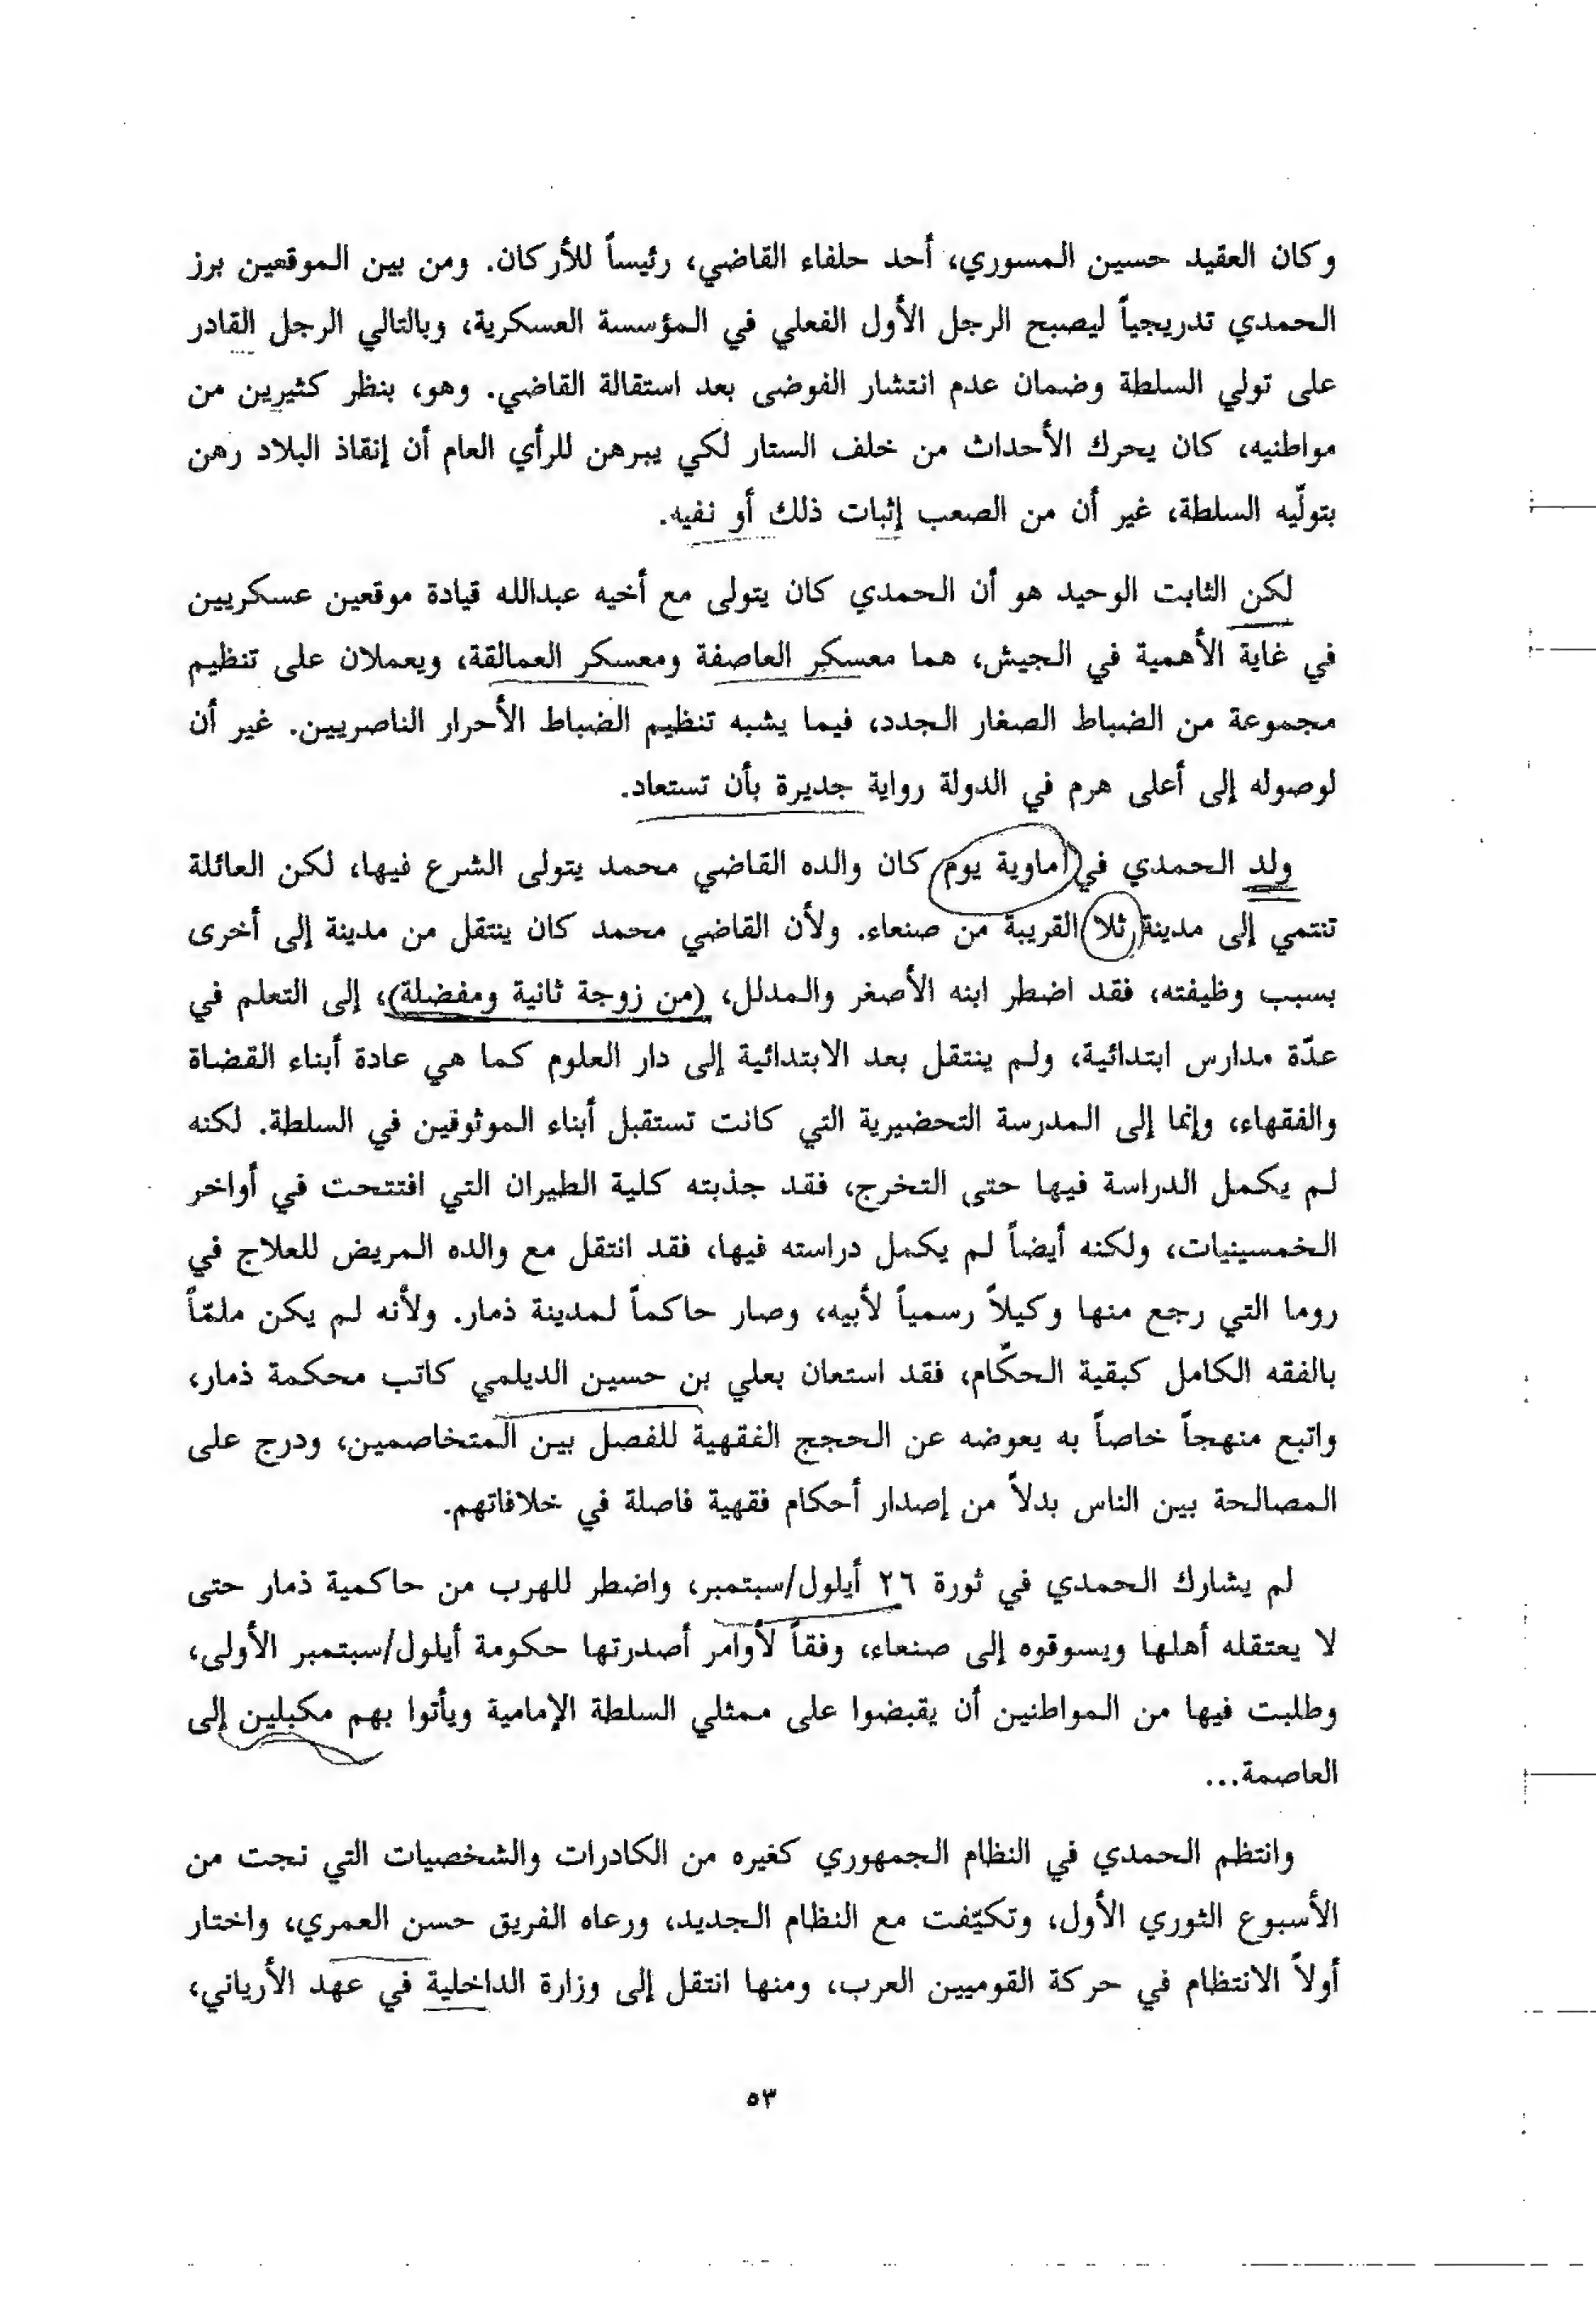 وكان العقيد حسين المسوري، أحد حلفاء القاضي، رئيساً للأركان. ومن بين الموقعين برز
الحمدي تدريجياً ليصبح الرجل الأول الفعلي في المؤسسة العسكرية، وبالتالي الرجل القادر
على تولي السلطة وضمان عدم انتشار الفوضى بعد استقالة القاضي. وهو، بنظر كثيرين من
مواطنيه، كان يحرك الأحداث من خلف الستار لكي يبرهن للرأي العام أن إنقاذ البلاد رهن
بتولّيه السلطة، غير أن من الصعب إثبات ذلك أو نفيه.
لكن الثابت الوحيد هو أن الحمدي كان يتولى مع أخيه عبدالله قيادة موقعين عسكريين
في غاية الأهمية في الجيش، هما معسكر العاصفة ومعسكر العمالقة، ويعملان على تنظيم
مجموعة من الضباط الصغار الجدد، فيما يشبه تنظيم الضباط الأحرار الناصريين. غير أن
لوصوله إلى أعلى هرم في الدولة رواية جديرة بأن تستعاد.
ولد الحمدي في ماوية يوم كان والده القاضي محمد يتولى الشرع فيها، لكن العائلة
تنتمي إلى مدينة ثلا القريبة من صنعاء. ولأن القاضي محمد كان ينتقل من مدينة إلى أخرى
بسبب وظيفته، فقد اضطر ابنه الأصغر والمدلل، (من زوجة ثانية ومفضلة)، إلى التعلم في
عدّة مدارس ابتدائية، ولم ينتقل بعد الابتدائية إلى دار العلوم كما هي عادة أبناء القضاة
والفقهاء، وإنما إلى المدرسة التحضيرية التي كانت تستقبل أبناء الموثوقين في السلطة. لكنه
لم يكمل الدراسة فيها حتى التخرج، فقد جذبته كلية الطيران التي افتتحت في أواخر
الخمسينيات، ولكنه أيضاً لم يكمل دراسته فيها، فقد انتقل مع والده المريض للعلاج في
روما التي رجع منها وكيلاً رسمياً لأبيه، وصار حاكماً لمدينة ذمار. ولأنه لم يكن ملمّاً
بالفقه الكامل كبقية الحكّام، فقد استعان بعلي بن حسين الديلمي كاتب محكمة ذمار،
واتبع منهجاً خاصاً به يعوضه عن الحجج الفقهية للفصل بين المتخاصمين، ودرج على
المصالحة بين الناس بدلاً من إصدار أحكام فقهية فاصلة في خلافاتهم.
لم يشارك الحمدي في ثورة ٢٦ أيلول/سبتمبر، واضطر للهرب من حاكمية ذمار حتى
لا يعتقله أهلها ويسوقوه إلى صنعاء، وفقاً لأوامر أصدرتها حكومة أيلول/سبتمبر الأولى،
وطلبت فيها من المواطنين أن يقبضوا على ممثلي السلطة الإمامية ويأتوا بهم مكبلين إلى
العاصمة...
وانتظم الحمدي في النظام الجمهوري كغيره من الكادرات والشخصيات التي نجت من
الأسبوع الثوري الأول، وتكيّفت مع النظام الجديد، ورعاه الفريق حسن العمري، واختار
أولاً الانتظام في حركة القوميين العرب، ومنها انتقل إلى وزارة الداخلية في عهد الأرياني،
٥٣